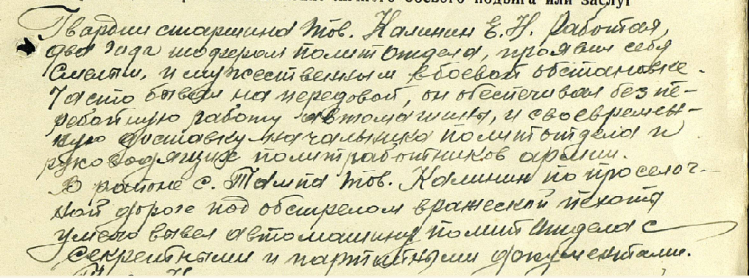 боевого подвига или заслуг
Гвардии старшина тов. Калинин Е. Н. Работая
два года шофером политотдела, проявил себя
смелым, и мужественным в боевой обстановке.
Часто бывая на передовой, он обеспечивал беспе-
ребойную работу автомашины, и своевремен-
ную доставку начальника политотдела и
руководящих политработников армии.
В районе с. Тампа тов. Калинин по проселоч-
ной дороге под обстрелом вражеской пехоты
умело вывел автомашину политотдела с
секретными и партийными документами.